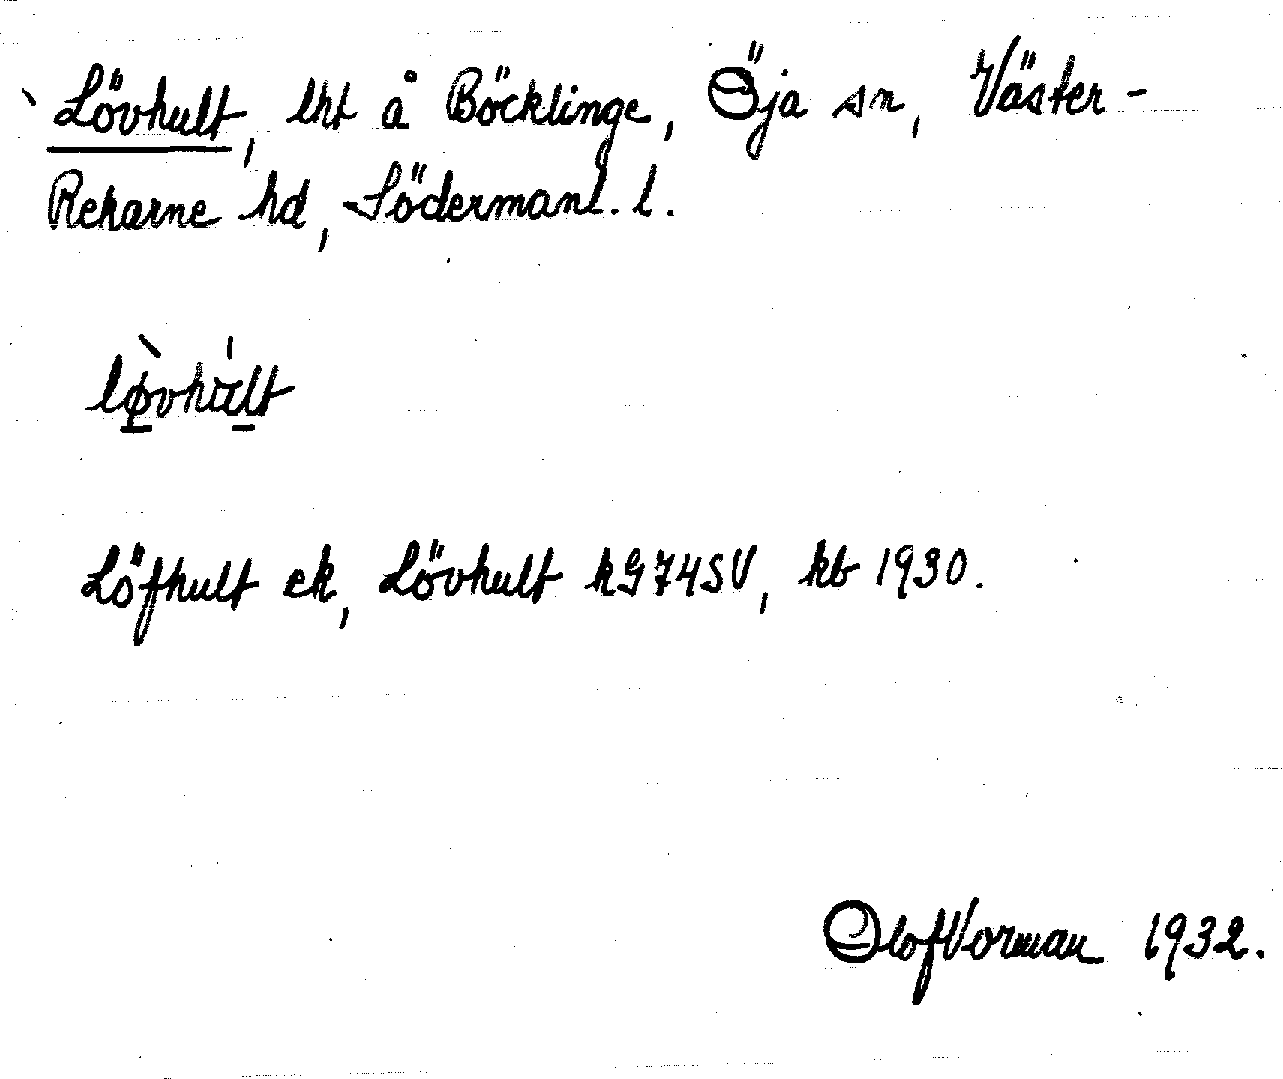 Lövhult, lht å Böcklinge, Öja sn, Väster-
Rekarne hd, Södermanl. l.
Löfhult ek, Lövhult kG74SV, kb 1930.
Olof Vorman 1932.